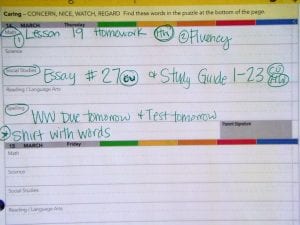 Caring – CONCERN, NICE, WATCH, REGARD Find these words in the puzzle at the bottom of the page.
14 MARCH Thursday
Math
① Lesson 19 Homework Fluency
Science
Social Studies
Essay #27 & Study Guide 1-23
Reading / Language Arts
Spelling
WW Due tomorrow & Test tomorrow
Shirt with words
Parent Signature
15 MARCH Friday
Math
Science
Social Studies
Reading / Language Arts